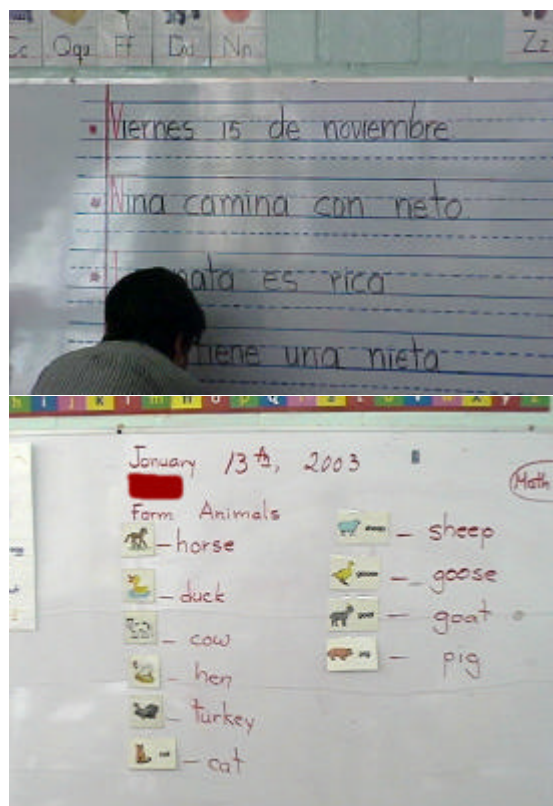 Qqu Ff Dd Nn Zz
Viernes 15 de noviembre
Nina camina con neto
nata es rica
tiene una nieta
January 13th, 2003
Math
Form Animals
horse
duck
cow
hen
turkey
cat
sheep
goose
goat
pig